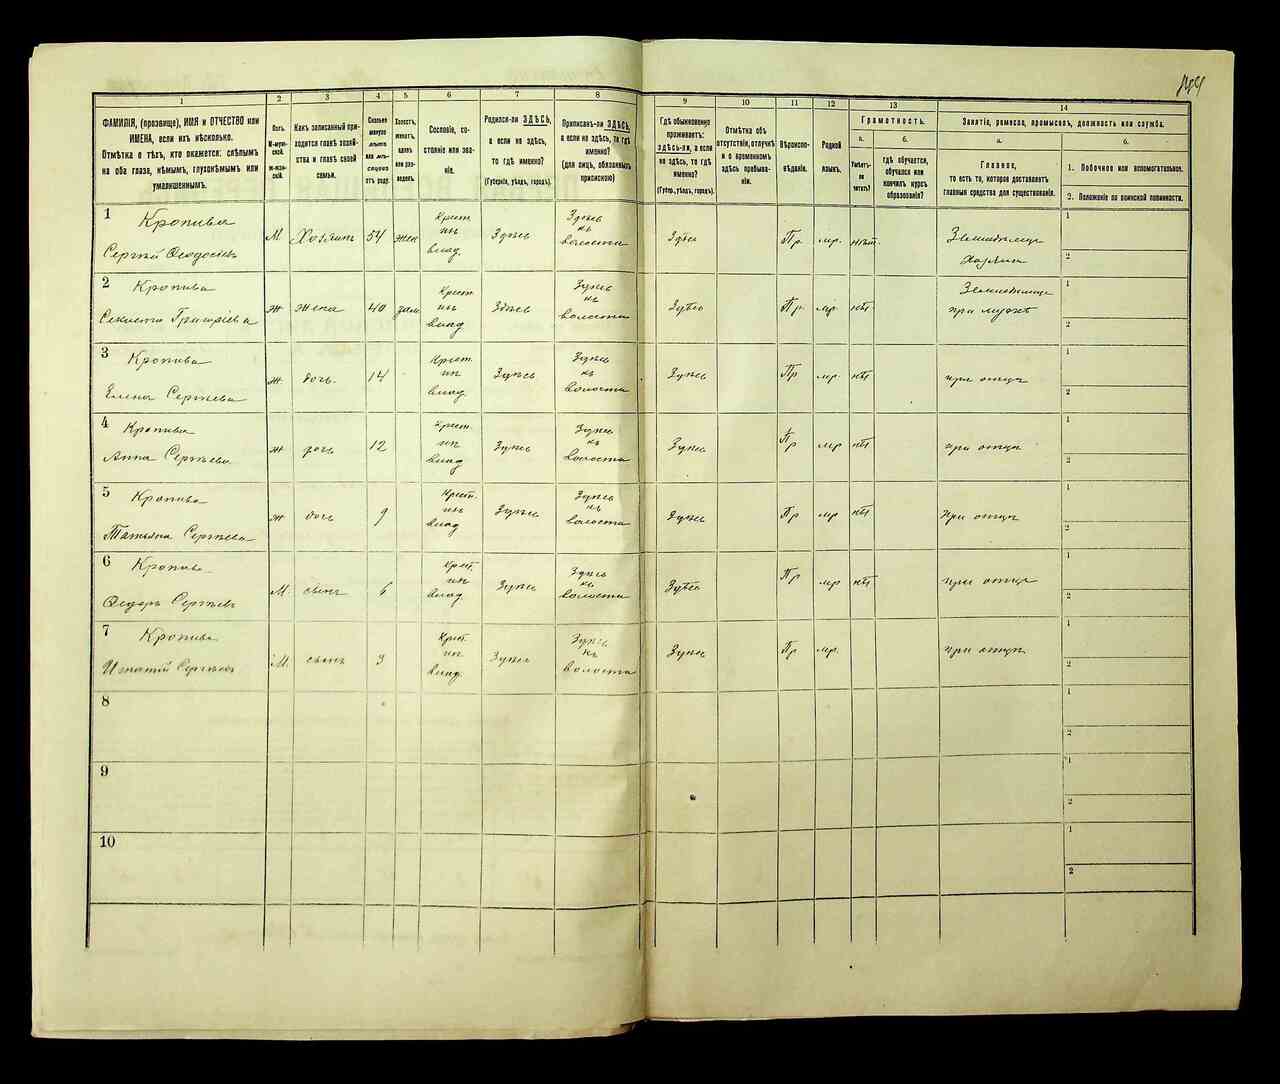 144
1
2
3
4
5
6
7
8
9
10
11
12
13
14
ФАМИЛІЯ, (прозвище), ИМЯ и ОТЧЕСТВО или
ИМЕНА, если ихъ нѣсколько.
Отмѣтка о тѣхъ, кто окажется: слѣпымъ
на оба глаза, нѣмымъ, глухонѣмымъ или
умалишеннымъ.
Полъ.
М-муж-
ской.
Ж-жен-
скій.
Какъ записанный при-
ходится главѣ хозяй-
ства и главѣ своей
семьи.
Сколько
минуло
лѣтъ
или мѣ-
сяцевъ
отъ роду.
Холостъ,
женатъ,
вдовъ
или раз-
веденъ.
Сословіе, со-
стояніе или зва-
ніе.
Родился-ли ЗДѢСЬ,
а если не здѣсь,
то гдѣ именно?
(Губернія, уѣздъ, городъ).
Приписанъ-ли ЗДѢСЬ,
а если не здѣсь, то гдѣ
именно?
(для лицъ, обязанныхъ
припискою)
Гдѣ обыкновенно
проживаетъ:
ЗДѢСЬ-ли, а если
не здѣсь, то гдѣ
именно?
(Губер., уѣздъ, городъ).
Отмѣтка объ
отсутствіи, отлучкѣ
и о временномъ
здѣсь пребыва-
ніи.
Вѣроиспо-
вѣданіе.
Родной
языкъ.
Грамотность.
а.
Умѣетъ-
ли
читать?
б.
гдѣ обучается,
обучался или
кончилъ курсъ
образованія?
Занятіе, ремесло, промыселъ, должность или служба.
а.
Главное,
то есть то, которое доставляетъ
главныя средства для существованія.
б.
1. Побочное или вспомогательное.
2. Положеніе по воинской повинности.
1 Кропива
Сергѣй Ѳеодосіевъ
М. Хозяинъ 54 жен
Крест
ин
влад.
Здѣсь
Здѣсь
къ
волости
Здѣсь
Пр. мр. нѣт.
Земледѣлецъ
хозяинъ
1
2
2 Кропива
Григоріева
ж жена 40 зам.
Крест
ин
влад
Здѣсь
Здѣсь
къ
волости
Здѣсь
Пр. мр. нѣт
Земледѣлецъ
при мужѣ
1
2
3 Кропива
Елена Сергѣева
ж. дочь. 14
Крест.
ин
влад.
Здѣсь
Здѣсь
къ
волости
Здѣсь
Пр мр. нѣт
при отцѣ
1
2
4 Кропива
Анна Сергѣева
ж дочь 12
Крест.
ин
влад
Здѣсь
Здѣсь
къ
волости
Здѣсь
Пр мр. нѣт
при отцѣ
1
2
5 Кропива
Татьяна Сергѣева
ж дочь 9
Крест.
ин
влад
Здѣсь
Здѣсь
къ
волости
Здѣсь
Пр мр нѣт
при отцѣ
1
2
6 Кропива
Ѳедоръ Сергѣевъ
М. сынъ 6
Крест.
ин
влад
Здѣсь
Здѣсь
къ
волости
Здѣсь
Пр мр нѣт
при отцѣ
1
2
7 Кропива
Игнатій Сергѣевъ
М. сынъ 3
Крест.
ин
влад.
Здѣсь
Здѣсь
къ
волости
Здѣсь
Пр мр.
при отцѣ
1
2
8
1
2
9
1
2
10
1
2